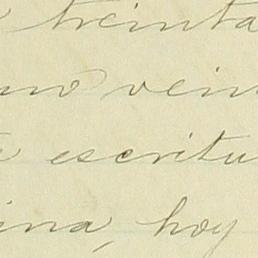 treinta
no vein
escritu
ina, hoy